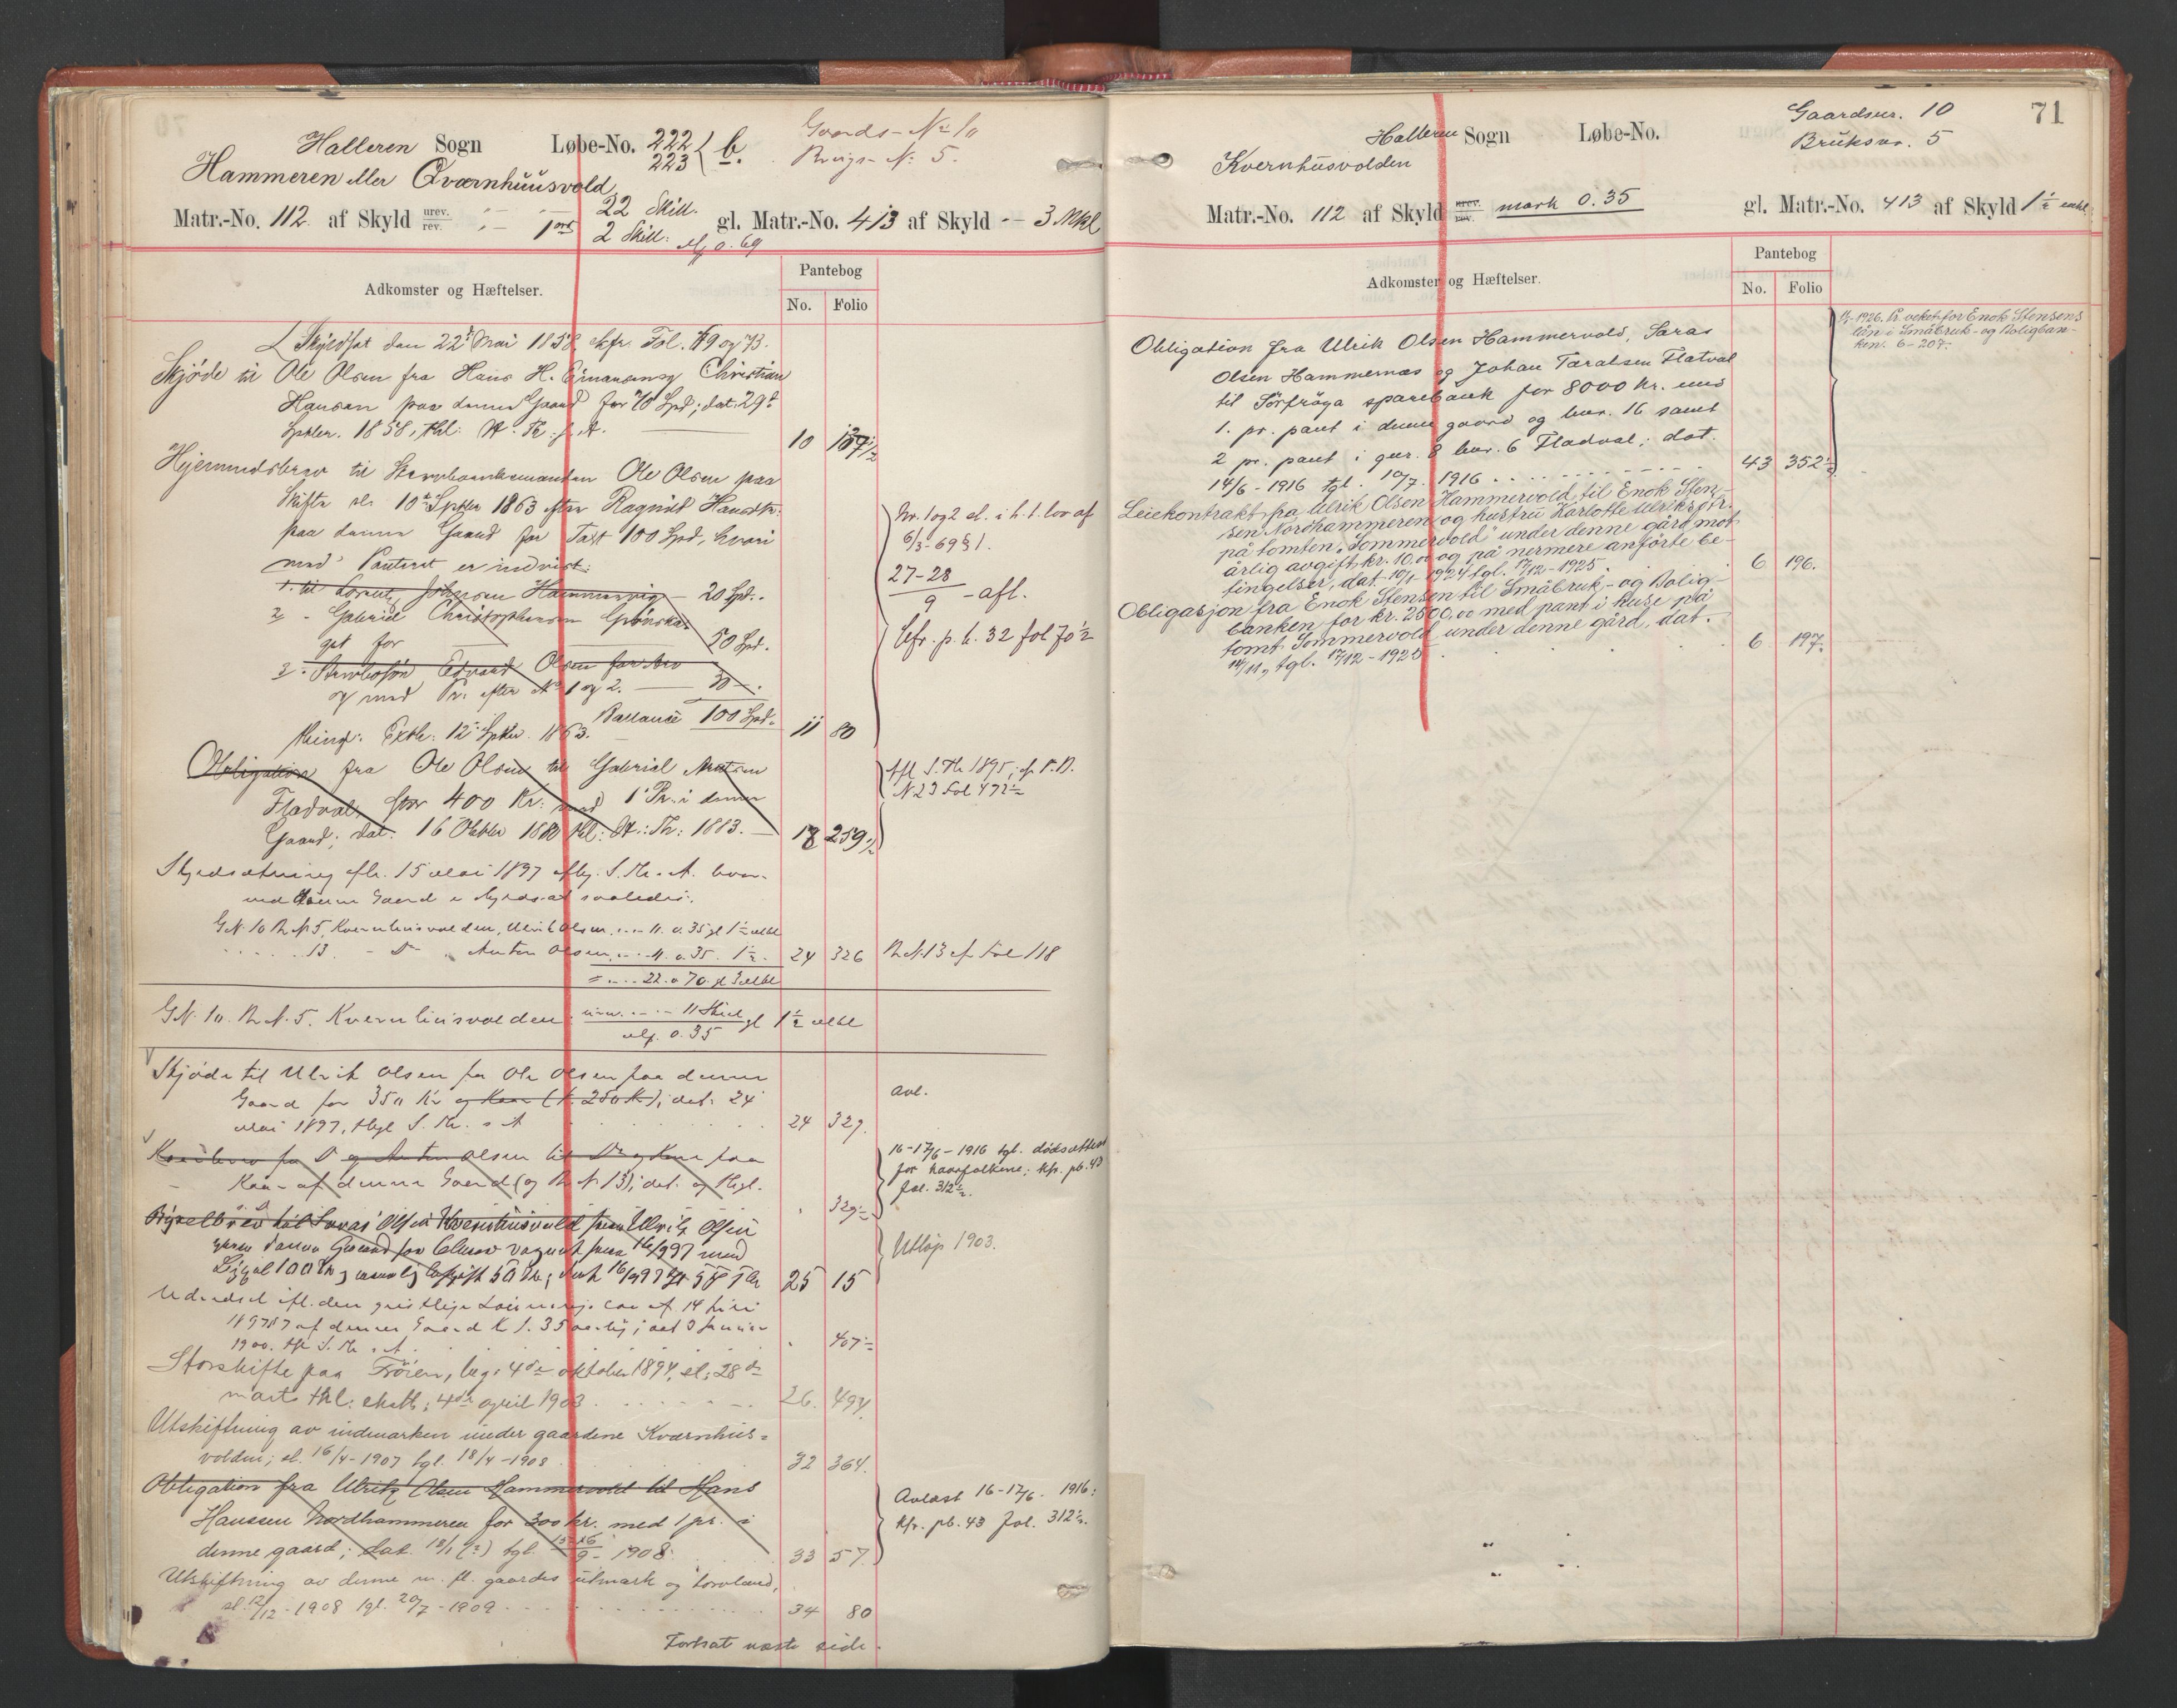 Halleren Sogn Løbe-No. 222 223 b. Gaards-No 10
Hammeren eller Qværnhuusvold Brugs-No 5.
Matr.-No. 112 af Skyld urev. rev. 1 ort 22 Skill. 2 Skill: gl. Matr.-No. 413 af Skyld -- 3 Mkl
0.69
Adkomster og Hæftelser. Pantebog
No. Folio
Skyldsat den 22 Mai 1858 cfr. Fol. og 73.
Skjøde til Ole Olsen fra Hans H. og Christian
Hansen paa denne Gaard for 70 Spd; dat. 29
Septbr. 1858, thl:
10 107½
Hjemmelsbrev til Ole Olsen paa
Skifte sl. 10 Septbr 1863 efter Ragnild Hansdtr.
paa denne Gaard for Taxt 100 Spd, hvori
med Panteret er indvist:
1. til Lorentz Johnsen Hammervig — 20 Spd.
2 - Gabriel Christophersen
get for 50 Spd.
3. Edvard Olsen
med Pr. efter No 1 og 2. — 30 —
Ballance 100 Spd.
thingl. Extr. 12 Septbr. 1863. 11 80
No. 1 og 2 el. i h. t. lov af
6/3-69 § 1.
27-28/9 - afl.
Cfr. p. b. 32 fol 70½
Obligation fra Ole Olsen til Gabriel
Fladval, for 400 Kr: med 1 Pr. i denne
Gaard; dat. 16 Oktbr 1882 thl: Th: 1883. — 18 259½
Afl S. Th 1895, cf P.B.
N 23 Fol 472½
Skyldsætning afh. 15 Mai 1897 S. Th. hvor-
ved denne Gaard er skyldsat saaledes:
G.N. 10 B.N. 5, Kvernhusvolden, Ulrik Olsen, --- 11. 0.35 gl 1½ mkl
13 - D - Anton Olsen --- 11. 0.35. 1½. 24 326 B.N. 13 cf Fol 118
= --- 22. 0 70. gl 3 mkl
G.N. 10. B.N. 5. Kvernhusvolden urev. --- 11 Skill gl 1½ mkl
0.35
Skjøde til Ulrik Olsen fra Ole Olsen paa denne
Gaard for 350 Kr og Kaar (K. 250 Kr); dat. 24
Mai 1897, thgl S. Th. s A 24 329.
avl.
Kaarbrev fra D og Anton Olsen til paa
Kaar af denne Gaard (og B N 13); dat. og thgl. 329½
16-17/6-1916 tgl. dødsattest
for kaarfolkene; kfr. pb. 43
fol. 312½.
Bygselbrev til Saras Olsen Kvernhusvold fra Ulrik Olsen
denne Gaard for
100 50 Kr; dat 16/ 25 15
Utløp 1903.
Udredsel ifl. den geistlige Lønningslov af 14 Juni
1897 af denne Gaard K 1.35 aarlig; dat 3 Januar
1900. thl S. Th s. A. 407½
Storskifte paa Frøien, beg. 4de oktober 1894, sl. 28de
marts thl. ekstr. 4de april 1903. 26. 494.
Utskiftning av indmarken under gaardene Kværnhus-
volden; sl. 16/4-1907 tgl. 18/4-1908. 32 364.
Obligation fra Ulrik Olsen Hammervold til Hans
Hanssen Nordhammeren for 300 kr. med 1 pr. i
denne gaard; dat. 18/1 (?) tgl. 15-16/9-1908. 33 57.
Avlæst 16-17/6-1916:
kfr. pb. 43 fol. 312½.
Utskiftning av denne m. fl. gaardes utmark og torvland,
sl. 12/12-1908 tgl. 20/7-1909 34 80
Fortsat næste side.
71
Halleren Sogn Løbe-No. Gaardsnr. 10
Kvernhusvolden Bruksnr. 5
Matr.-No. 112 af Skyld urev. rev. mark 0.35 gl. Matr.-No. 413 af Skyld 1½ mkl
Adkomster og Hæftelser. Pantebog
No. Folio
Obligation fra Ulrik Olsen Hammervold, Saras
Olsen Hammernæs og Johan Taralsen Flatval
til Sörfröya sparebank for 8000 kr. med
1. pr. pant i denne gaard og bnr. 16 samt
2 pr. pant i gnr. 8 bnr. 6 Fladval; dat.
14/6-1916 tgl. 10/7 1916 43 352½
1926. Pr. veket for Enok Stensens
lån i Småbruk- og Boligban-
ken. 6-207.
Leiekontrakt fra Ulrik Olsen Hammervold til Enok Sten-
sen Nordhammeren og hustru Karlotte Ulriksdtr.
på tomten „Sommervold" under denne gård mot
årlig avgift kr. 10,00 og på nermere anförte be-
tingelser, dat. 10/1-1924 tgl. 17/12-1925. 6 196.
Obligasjon fra Enok Stensen til Småbruk- og Bolig-
banken for kr. 2500,00 med pant i huse på
tomt Sommervold under denne gård, dat.
14/11, tgl. 17/12-1925 6 197.